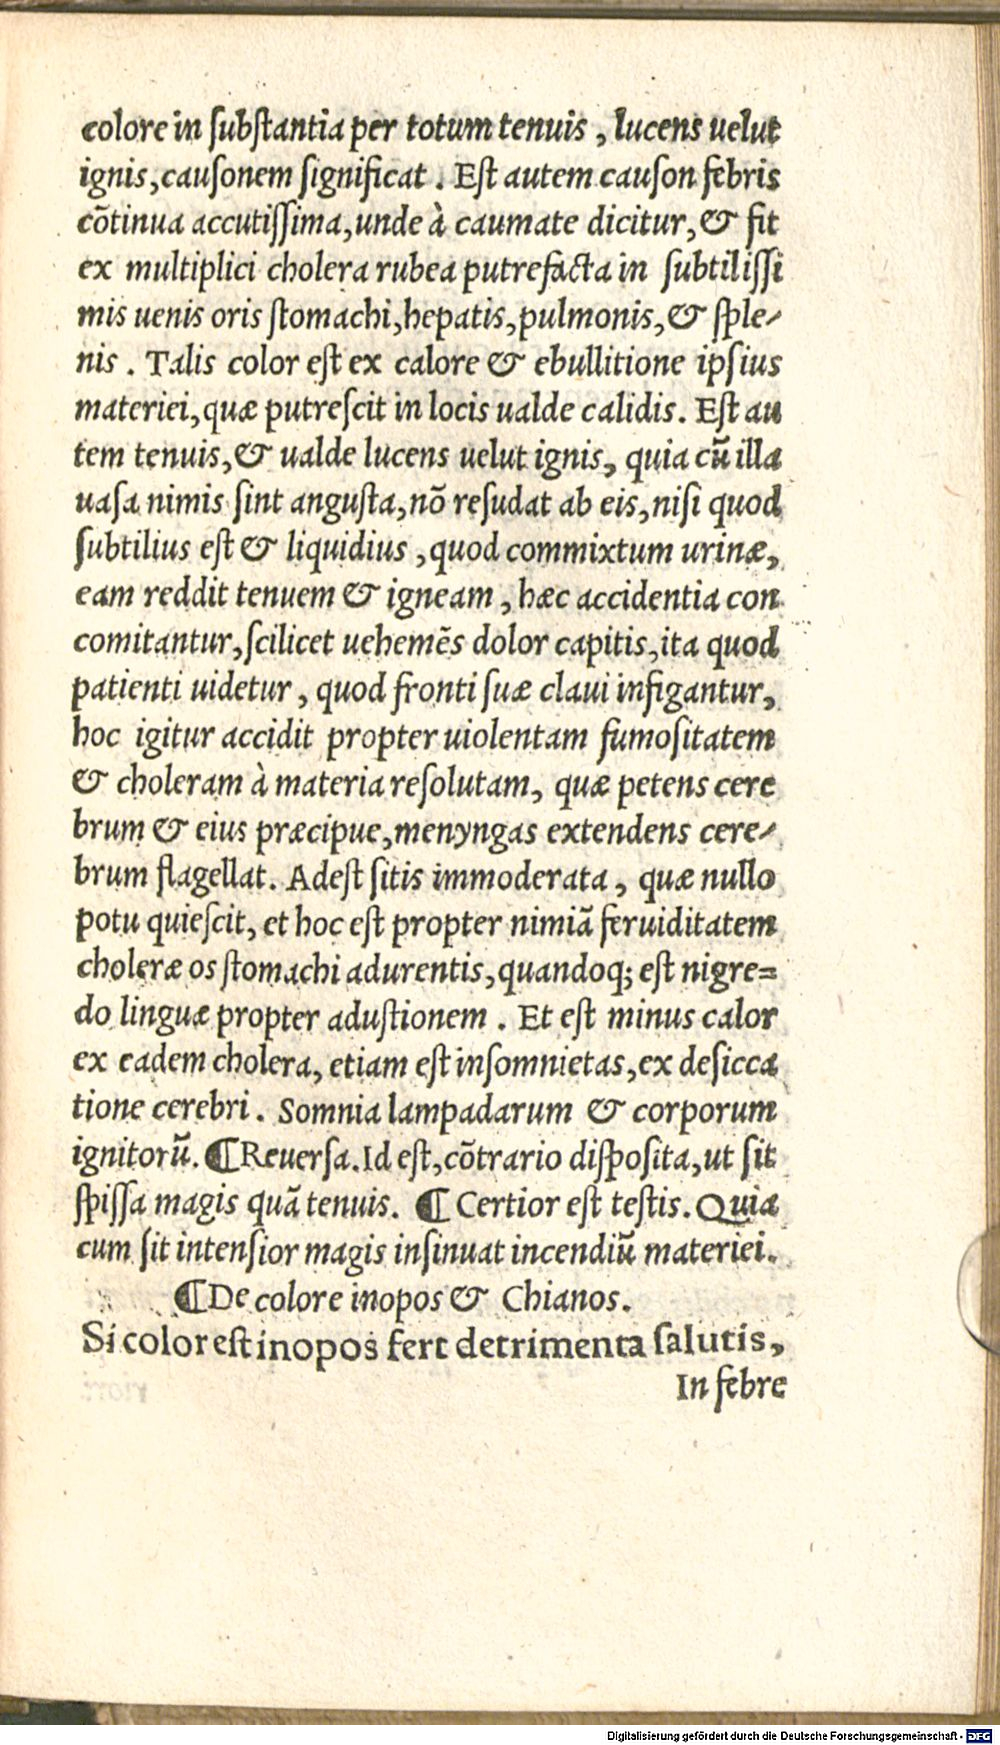 colore in ſubſtantia per totum tenuis, lucens uelut
ignis, cauſonem ſignificat. Eſt autem cauſon febris
cõtinua accutiſſima, unde à caumate dicitur, & fit
ex multiplici cholera rubea putrefacta in ſubtiliſſi
mis uenis oris ſtomachi, hepatis, pulmonis, & ſple-
nis. Talis color eſt ex calore & ebullitione ipſius
materiei, quæ putreſcit in locis ualde calidis. Eſt au
tem tenuis, & ualde lucens uelut ignis, quia cũ illa
uaſa nimis ſint anguſta, nõ reſudat ab eis, niſi quod
ſubtilius eſt & liquidius, quod commixtum urinæ,
eam reddit tenuem & igneam, hæc accidentia con
comitantur, ſcilicet uehemẽs dolor capitis, ita quod
patienti uidetur, quod fronti ſuæ claui infigantur,
hoc igitur accidit propter uiolentam fumoſitatem
& choleram à materia reſolutam, quæ petens cere
brum & eius præcipue, menyngas extendens cere-
brum flagellat. Adeſt ſitis immoderata, quæ nullo
potu quieſcit, et hoc eſt propter nimiã feruiditatem
choleræ os ſtomachi adurentis, quandoq; eſt nigre=
do linguæ propter aduſtionem. Et eſt minus calor
ex eadem cholera, etiam eſt inſomnietas, ex deſicca
tione cerebri. Somnia lampadarum & corporum
ignitorũ. ¶Reuerſa. Id eſt, cõtrario diſpoſita, ut ſit
ſpiſſa magis quã tenuis. ¶ Certior eſt teſtis. Quia
cum ſit intenſior magis inſinuat incendiũ materiei.
¶De colore inopos & Chianos.
Si color eſt inopos fert detrimenta ſalutis,
In febre
Digitalisierung gefördert durch die Deutsche Forschungsgemeinschaft - DFG